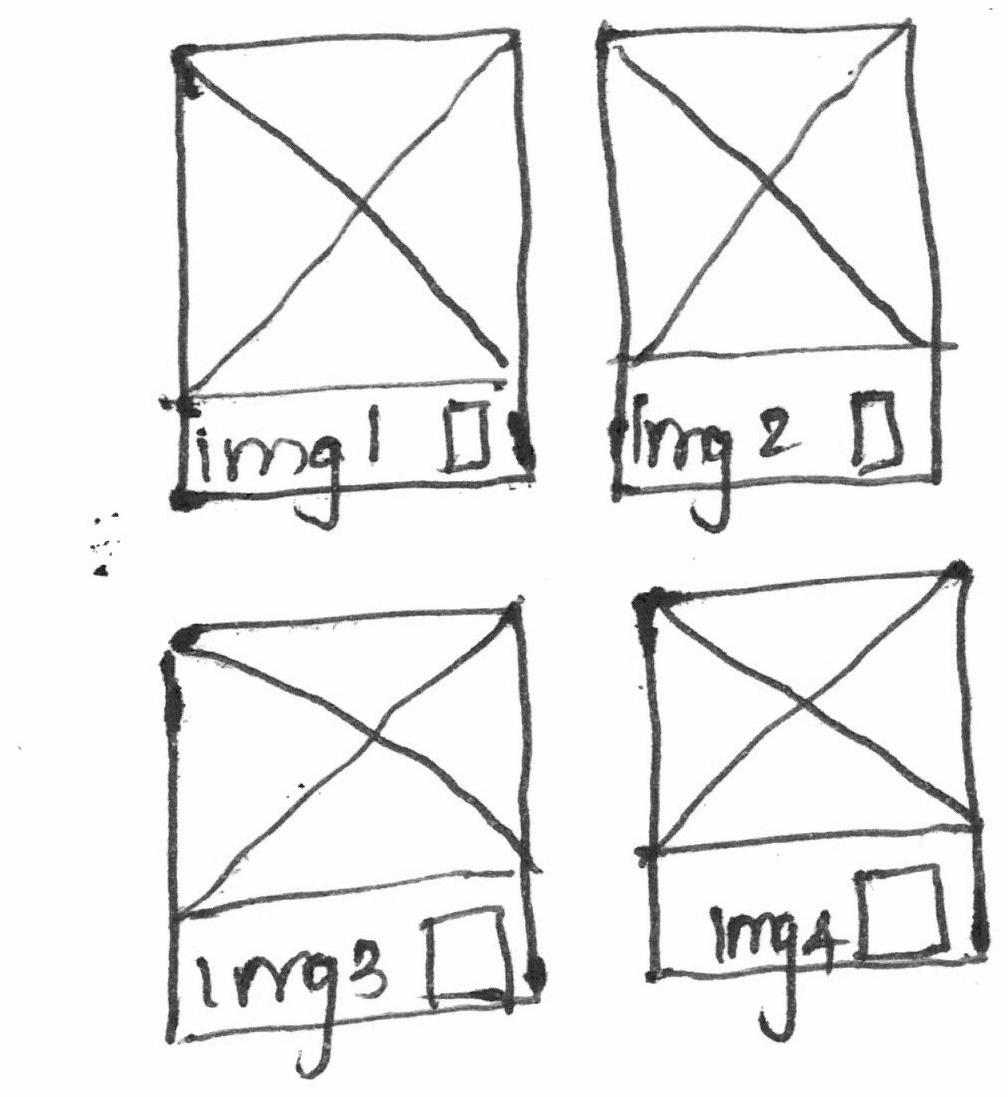 img 1
img 2
img3
img4